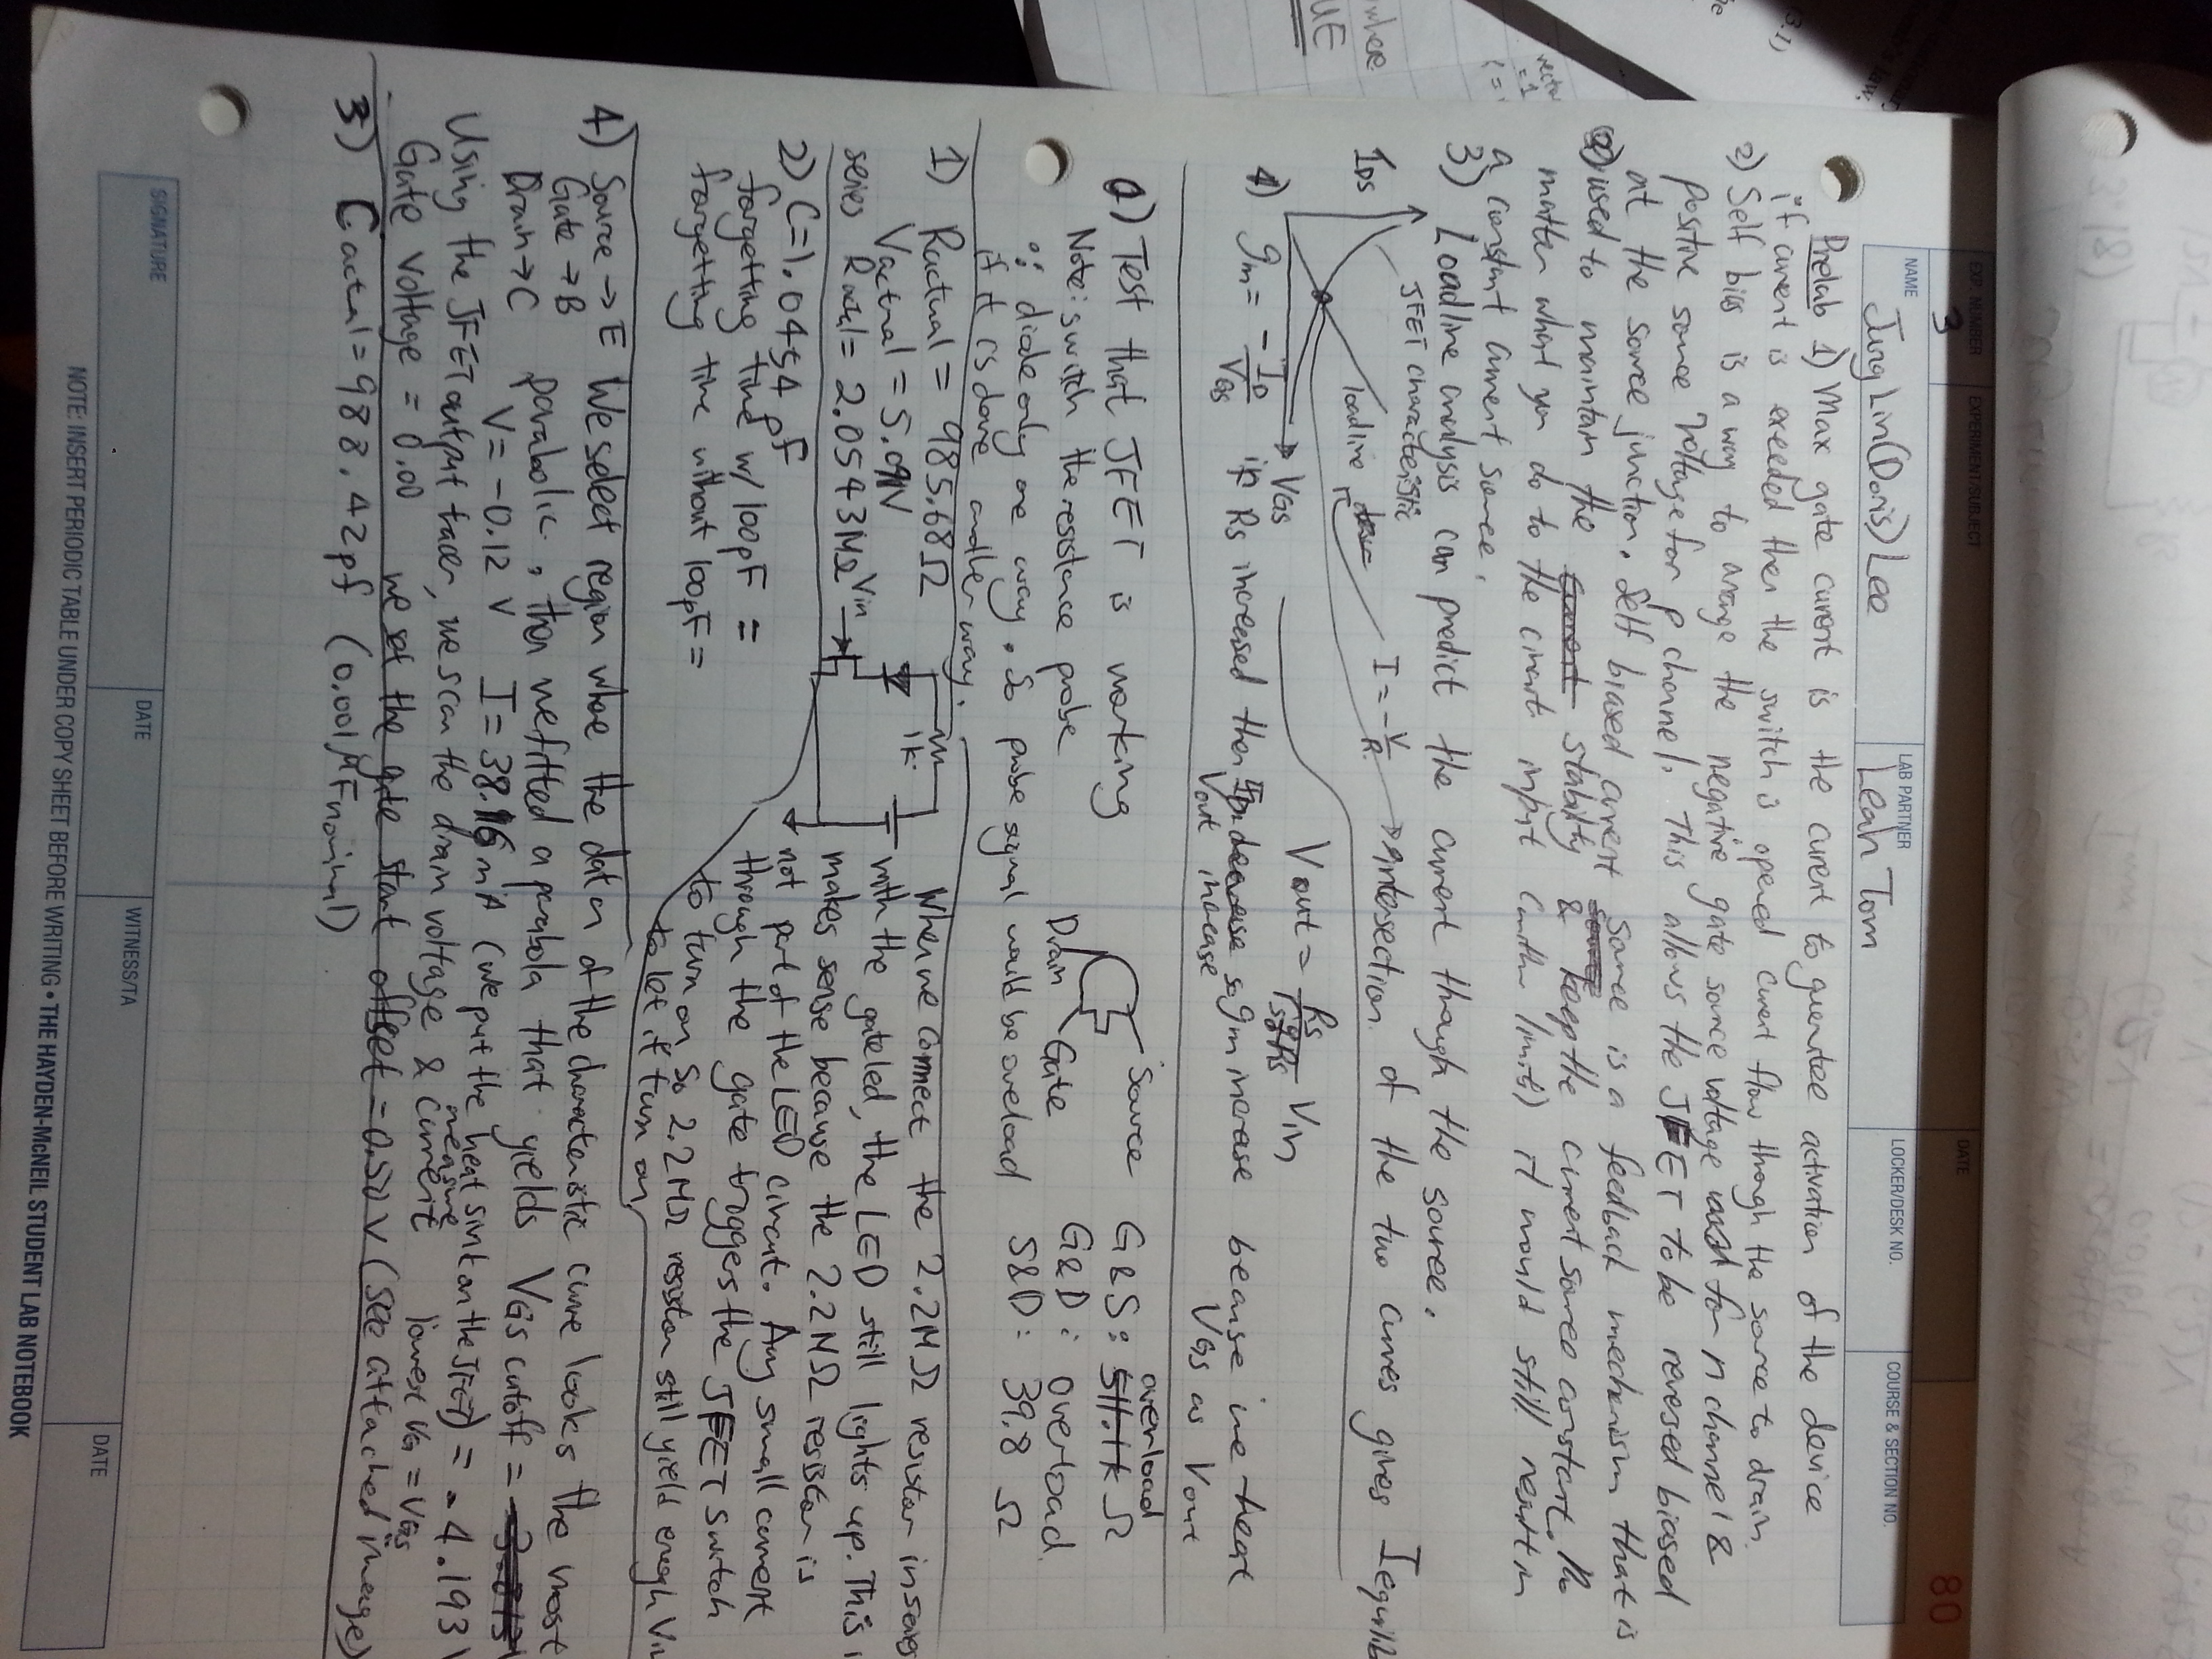 EXP. NUMBER
EXPERIMENT/SUBJECT
DATE
80
3
NAME
LAB PARTNER
LOCKER/DESK NO.
COURSE & SECTION NO.
Jing Lin (Doris) Lee
Leah Tom
Prelab 1) Max gate current is the current to guarentee activation of the device
if current is exceeded then the switch is opened current flow through the source to drain.
2) Self bias is a way to arrange the negative gate source voltage for n channel &
positive source voltage for p channel. This allows the JFET to be reversed biased
at the source junction. Self biased current source is a feedback mechanism that is
used to maintain the stability & keep the current source constant. No
matter what you do to the circuit input (within limits) it would still result in
a constant current source.
3) Loadline analysis can predict the current through the source.
IDS
JFET characteristic
loadline
I = -V/R
intersection of the two curves gives Iequilib
VGS
Vout = Vin
4) gm = -ID/VGS if Rs increased then decrease so gm increase because inc that
Vout increase
VGS as Vout
0) Test that JFET is working
Source
Drain
Gate
G&S: overload
51.1k Ω
Note: switch the resistance probe
G&D: overload
∴ diode only one way. So probe signal would be overload
S&D: 39.8 Ω
if it is done another way.
1) Ractual = 985.68Ω
Vactual = 5.09V
series Ractual = 2.0543MΩ
Vin
1k
When we connect the 2.2MΩ resistor in series
with the gate led, the LED still lights up. This
makes sense because the 2.2MΩ resistor is
not part of the LED circuit. Any small current
through the gate triggers the JFET switch
to turn on so 2.2MΩ resistor still yield enough Vin
to let it turn on
2) C=1.0454 pF
forgetting time w/ 100pF =
forgetting time without 100pF =
4) Source → E We select region where the data of the characteristic curve looks the most
Gate → B parabolic, then we fitted a parabola that yields VGS cutoff =
Drain → C V = -0.12 V I = 38.16 mA (we put the heat sink on the JFET) = -4.193V
Using the JFET output tracer, we scan the drain voltage & measure current
lowest VG = VGS
Gate voltage = 0.00 we set the gate start offset = -0.50 V (see attached image)
3) Cactual = 988.42 pf (0.001μF nominal)
SIGNATURE
DATE
WITNESS/TA
DATE
NOTE: INSERT PERIODIC TABLE UNDER COPY SHEET BEFORE WRITING • THE HAYDEN-McNEIL STUDENT LAB NOTEBOOK
where